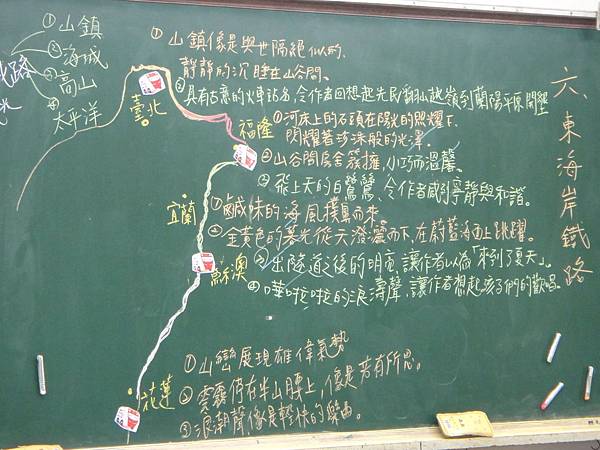 六、東海岸鐵路
①山鎮
②海城
③高山
④太平洋
①山鎮像是與世隔絕似的，
靜靜的沉睡在山谷間。
②具有古意的火車站名，令作者回想起先民翻山越嶺到蘭陽平原開墾
臺北
福隆
①河床上的石頭在陽光的照耀下，
閃耀著珍珠般的光澤。
②山谷間房舍簇擁，小巧而溫馨。
③飛上天的白鷺鷥，令作者感到寧靜與和諧。
宜蘭
①鹹味的海風撲鼻而來。
②金黃色的暮光從天潑灑而下，在蔚藍海面上跳躍。
③出隧道之後的明亮，讓作者以為「來到了夏天」。
④嘩啦啦的浪濤聲，讓作者想起孩子們的歡唱。
蘇澳
花蓮
①山巒展現雄偉氣勢
②雲霧仍在半山腰上，像是若有所思。
③浪潮聲像是輕快的樂曲。